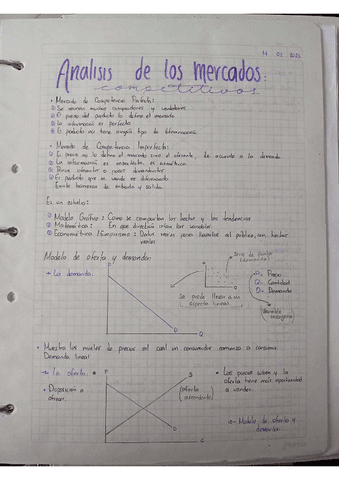 14 02 2023
Analisis de los mercados:
competitivos
• Mercado de Competencia Perfecta:
① Se reunen muchos compradores y vendedores
② El precio del producto lo define el mercado
③ La informacion es perfecta
④ El producto no tiene ningún tipo de diferenciacion
• Mercado de Competencia Imperfecta:
① El precio no lo define el mercado sino el oferente, de acuerdo a la demanda
② La informacion es
③ Precio
④ El producto que se vende es diferenciado
Existe barreras de entrada y salida
Es un estudio:
① Modelo Grafico: Como se comportan los hechos y las tendencias
② Matematicas: En que direccion van las variables
③ Econometrico / Empirismo: Datos reales para
reales
Modelo de oferta y demanda:
→ La demanda:
P
D
Q
(demanda)
Se puede llevar a un
aspecto lineal
P= Precio
Q= Cantidad
D= Demanda
• Muestra los niveles de precios al cual un consumidor comienza a consumir.
Demanda lineal
→ La oferta:
• Disposición a
ofrecer.
P
S
D
(oferta
ascendente)
• Los precios suben y la
oferta tiene más oportunidad
a vender.
→ Modelo de oferta y
demanda.